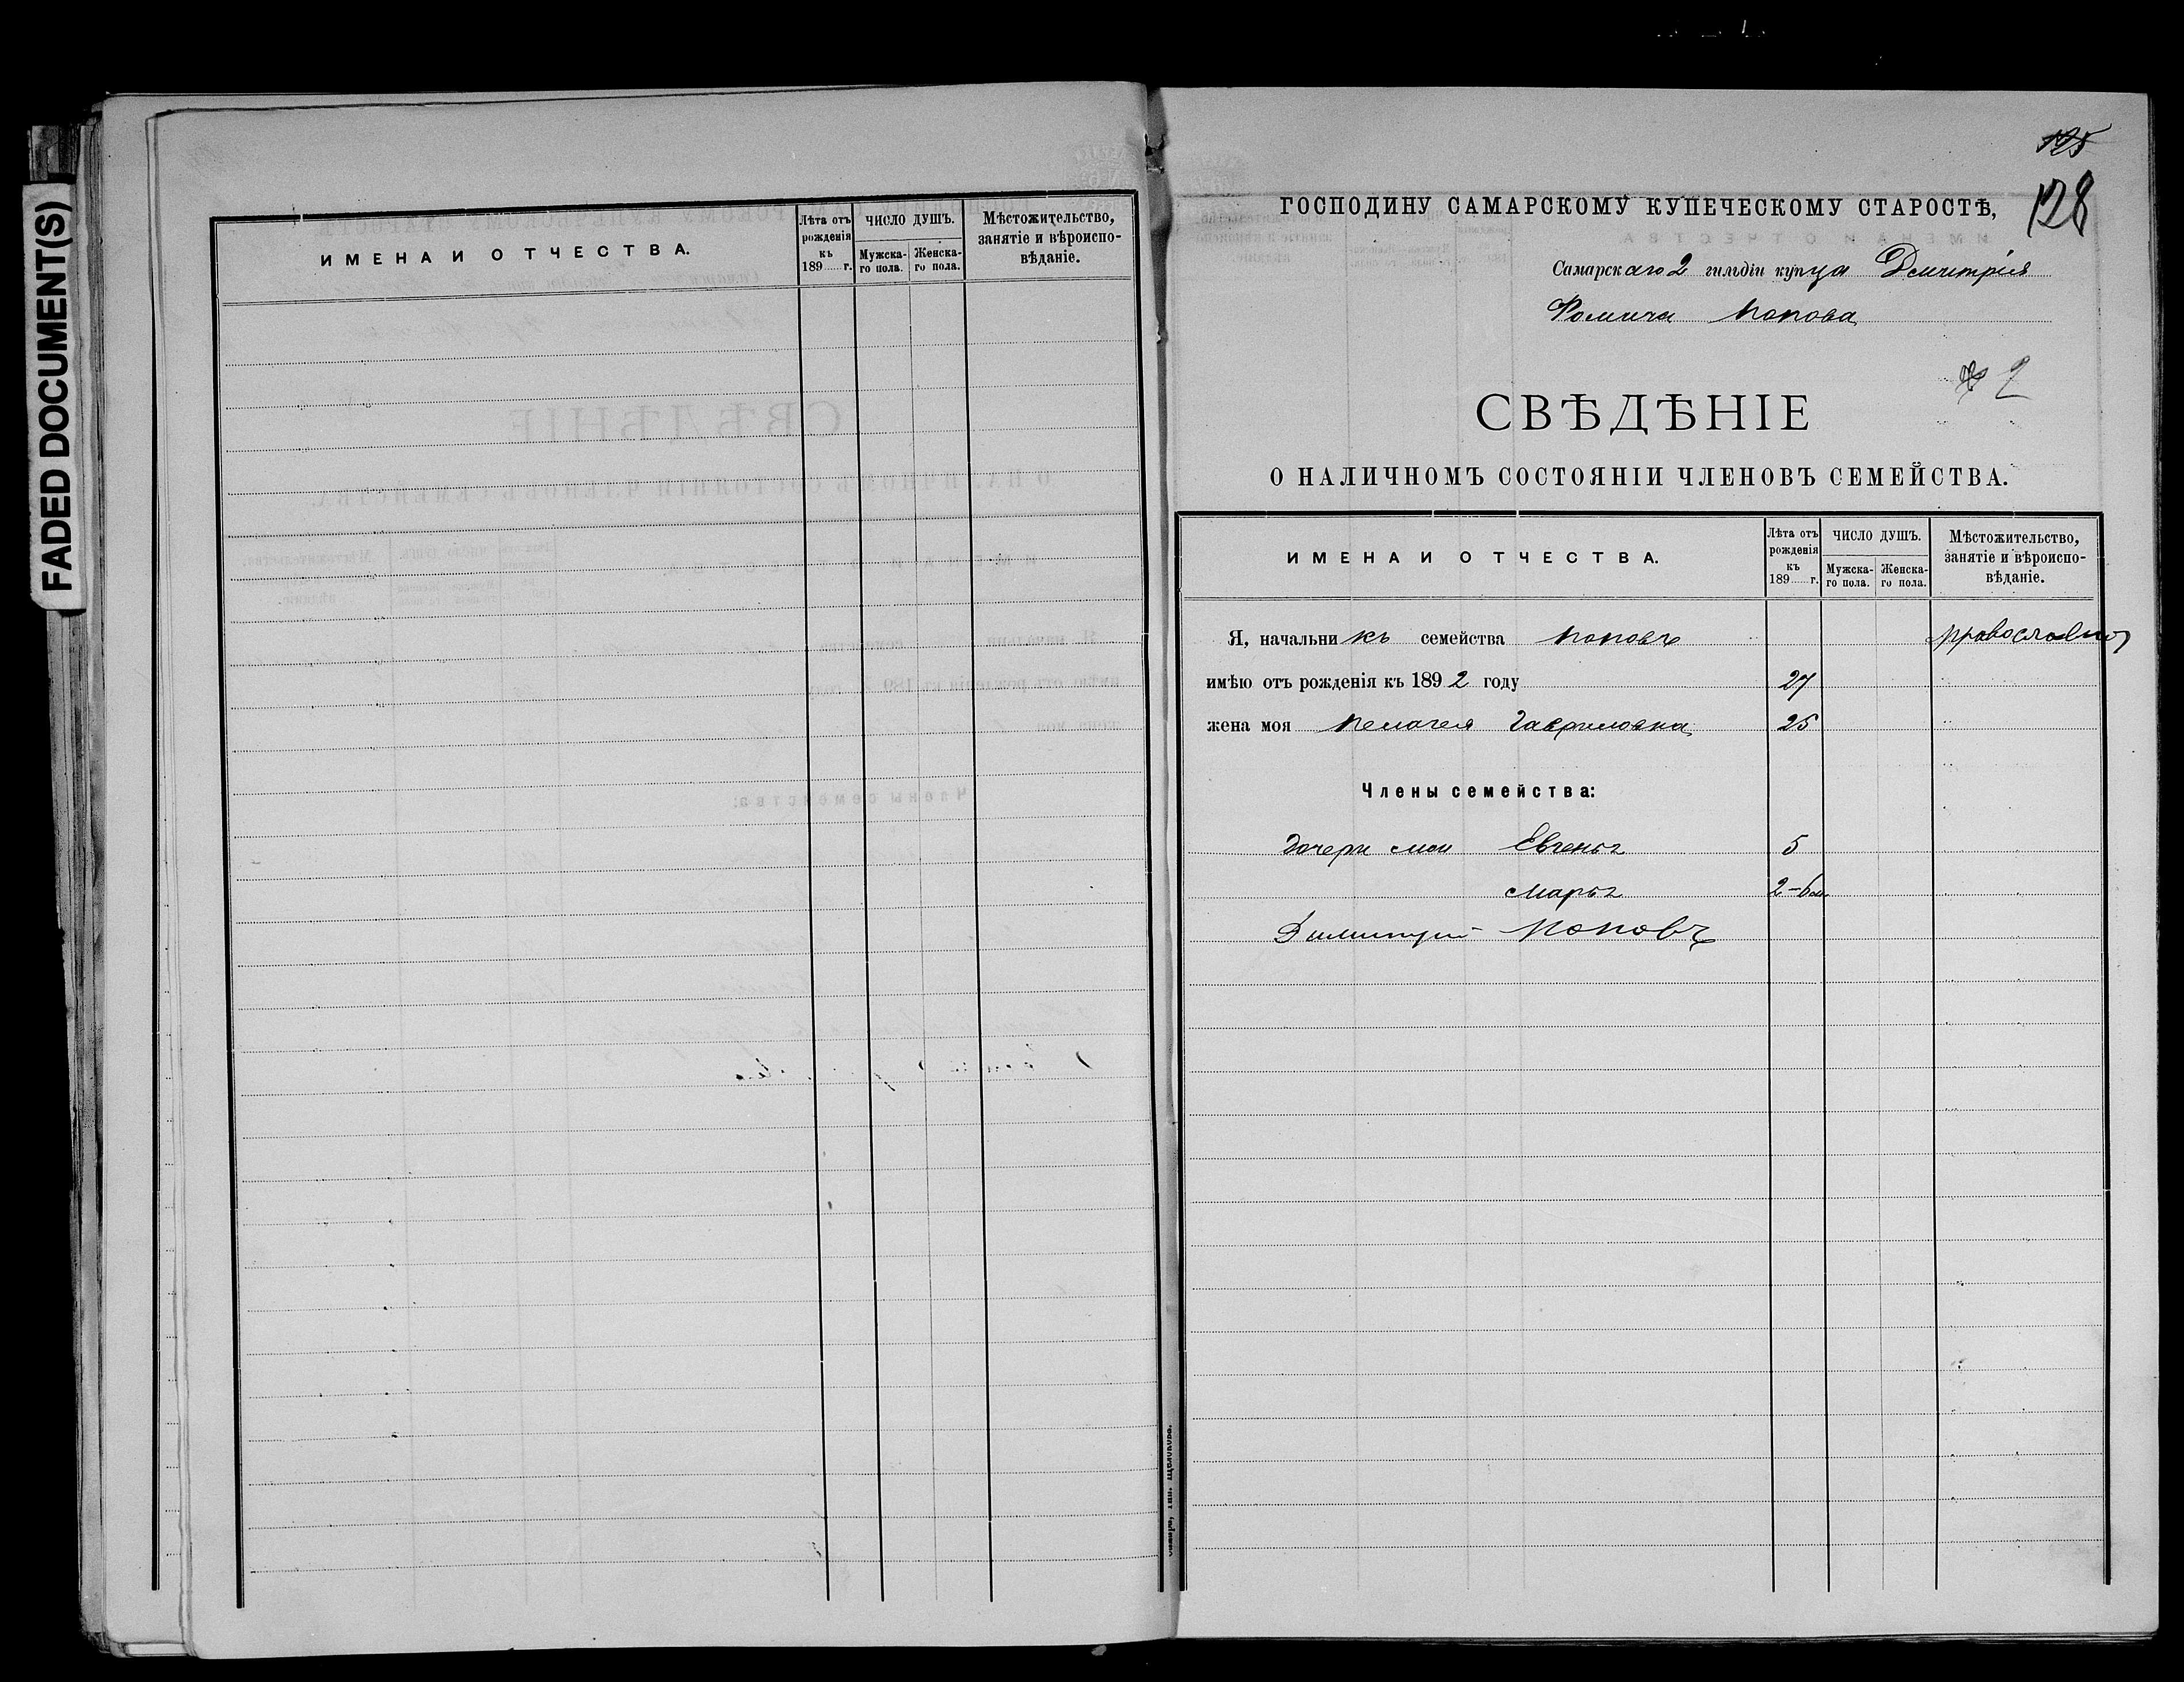 FADED DOCUMENT(S)
ИМЕНА И ОТЧЕСТВА.
Лѣта отъ рожденія къ 189 г.
ЧИСЛО ДУШЪ.
Мужска-го пола.
Женска-го пола.
Мѣстожительство, занятіе и вѣроиспо-вѣданіе.
125
128
ГОСПОДИНУ САМАРСКОМУ КУПЕЧЕСКОМУ СТАРОСТѢ,
Самарскаго 2 гильдіи купца Дмитрія
Фомича Попова
2
СВѢДѢНІЕ
О НАЛИЧНОМЪ СОСТОЯНІИ ЧЛЕНОВЪ СЕМЕЙСТВА.
ИМЕНА И ОТЧЕСТВА.
Лѣта отъ рожденія къ 189 г.
ЧИСЛО ДУШЪ.
Мужска-го пола.
Женска-го пола.
Мѣстожительство, занятіе и вѣроиспо-вѣданіе.
Я, начальникъ семейства Поповъ
имѣю отъ рожденія къ 1892 году 27
жена моя Пелагея Гавриловна 25
Члены семейства:
дочери мои Евгенья 5
Марья 2-6 м.
Димитрій Поповъ